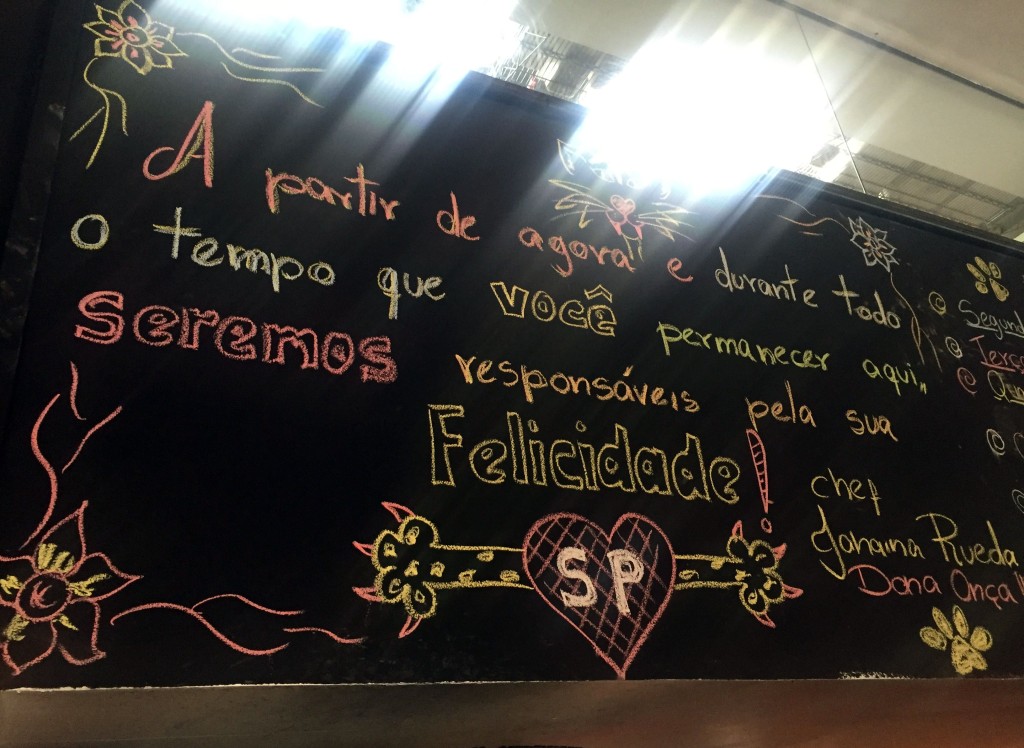 A partir de agora e durante todo
o tempo que você permanecer aqui,,
Seremos responsáveis pela sua
Felicidade!
SP
chef
Janaina Rueda
Dona Onça!!
Segund
Terça